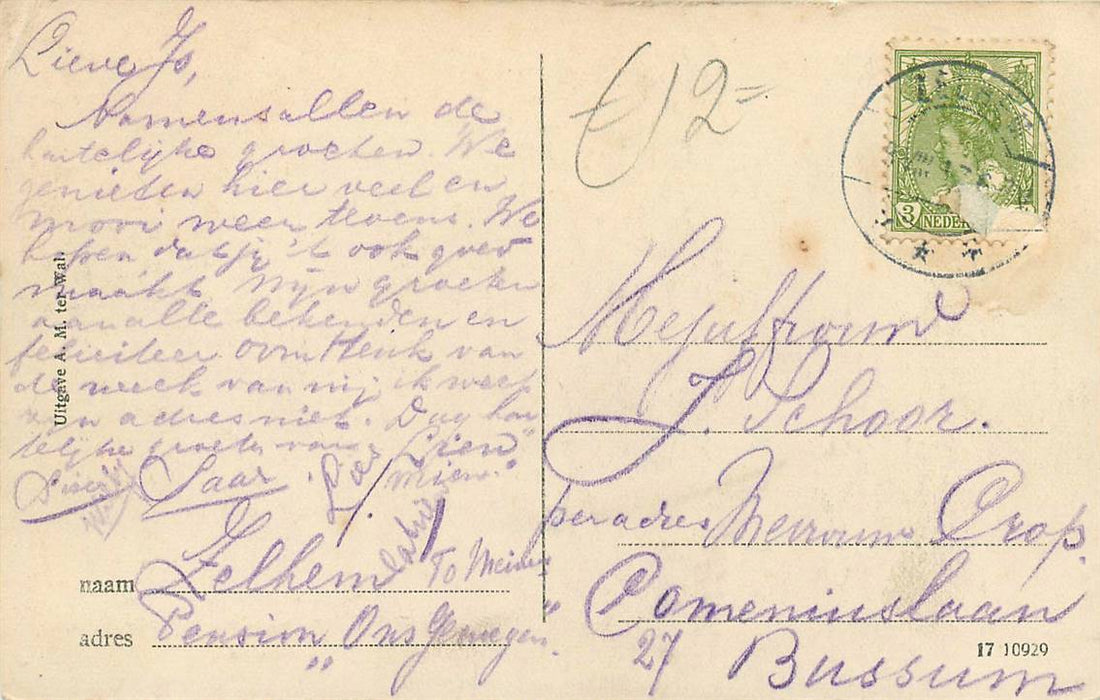 Lieve Jo,
Namens allen de
hartelijke groeten. We
genieten hier veel en
mooi weer tevens. We
hopen dat je 't ook goed
maakt. Mijn groeten
aan alle bekenden en
feliciteer oom Henk van
de week van mij, ik weet
zijn adres niet. Dag har
telijke groeten van Lien
Saar Mien
Zelhem
naam
Pension „Ons Genoegen"
adres
Uitgave A. M. ter Wal
£ 12=
3 NEDER
Mejuffrouw
J. Schoor.
per adres Mevrouw Crop.
Comeniuslaan
27 Bussum
17 10929